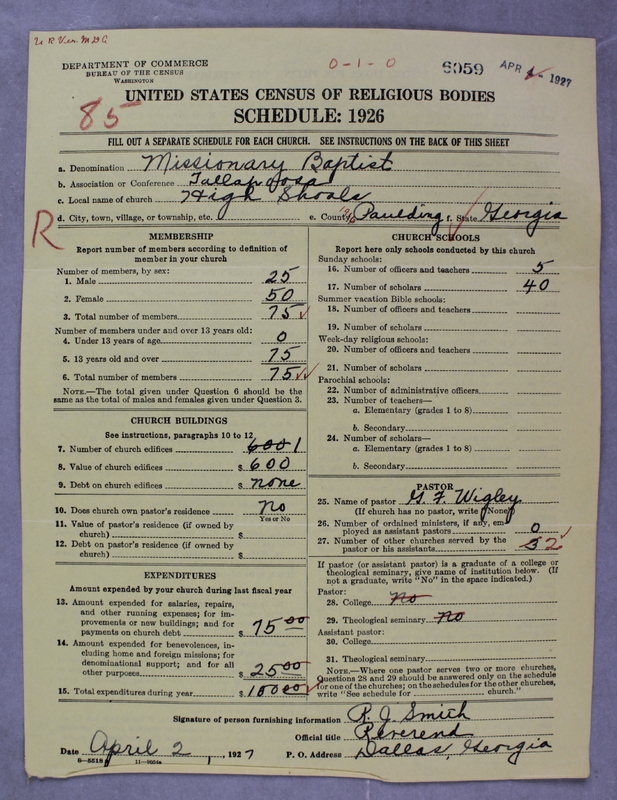 U R Ver. M D G
DEPARTMENT OF COMMERCE
BUREAU OF THE CENSUS
WASHINGTON
0-1-0
6059
APR 4 - 1927
85
UNITED STATES CENSUS OF RELIGIOUS BODIES
SCHEDULE: 1926
FILL OUT A SEPARATE SCHEDULE FOR EACH CHURCH. SEE INSTRUCTIONS ON THE BACK OF THIS SHEET
a. Denomination Missionary Baptist
b. Association or Conference Tallapoosa
c. Local name of church High Shoals
d. City, town, village, or township, etc. e. County Paulding f. State Georgia
R
MEMBERSHIP
Report number of members according to definition of
member in your church
Number of members, by sex:
1. Male 25
2. Female 50
3. Total number of members 75
Number of members under and over 13 years old:
4. Under 13 years of age 0
5. 13 years old and over 75
6. Total number of members 75
NOTE.—The total given under Question 6 should be the
same as the total of males and females given under Question 3.
CHURCH BUILDINGS
See instructions, paragraphs 10 to 12
7. Number of church edifices 600 1
8. Value of church edifices $ 600
9. Debt on church edifices $ none
10. Does church own pastor's residence no
Yes or No
11. Value of pastor's residence (if owned by
church) $
12. Debt on pastor's residence (if owned by
church) $
EXPENDITURES
Amount expended by your church during last fiscal year
13. Amount expended for salaries, repairs,
and other running expenses; for im-
provements or new buildings; and for
payments on church debt $ 75 00
14. Amount expended for benevolences, in-
cluding home and foreign missions; for
denominational support; and for all
other purposes $ 25 00
15. Total expenditures during year $ 100 00
CHURCH SCHOOLS
Report here only schools conducted by this church
Sunday schools:
16. Number of officers and teachers 5
17. Number of scholars 40
Summer vacation Bible schools:
18. Number of officers and teachers
19. Number of scholars
Week-day religious schools:
20. Number of officers and teachers
21. Number of scholars
Parochial schools:
22. Number of administrative officers
23. Number of teachers—
a. Elementary (grades 1 to 8)
b. Secondary
24. Number of scholars—
a. Elementary (grades 1 to 8)
b. Secondary
PASTOR
25. Name of pastor G. F. Wigley
(If church has no pastor, write "None")
26. Number of ordained ministers, if any, em-
ployed as assistant pastors 0
27. Number of other churches served by the
pastor or his assistants 3 2
If pastor (or assistant pastor) is a graduate of a college or
theological seminary, give name of institution below. (If
not a graduate, write "No" in the space indicated.)
Pastor:
28. College No
29. Theological seminary No
Assistant pastor:
30. College
31. Theological seminary
NOTE.—Where one pastor serves two or more churches,
Questions 28 and 29 should be answered only on the schedule
for one of the churches; on the schedules for the other churches,
write "See schedule for church."
Signature of person furnishing information R. J. Smith
Official title Reverend
Date April 2, 1927 P. O. Address Dallas, Georgia
8-5518 11-9054a